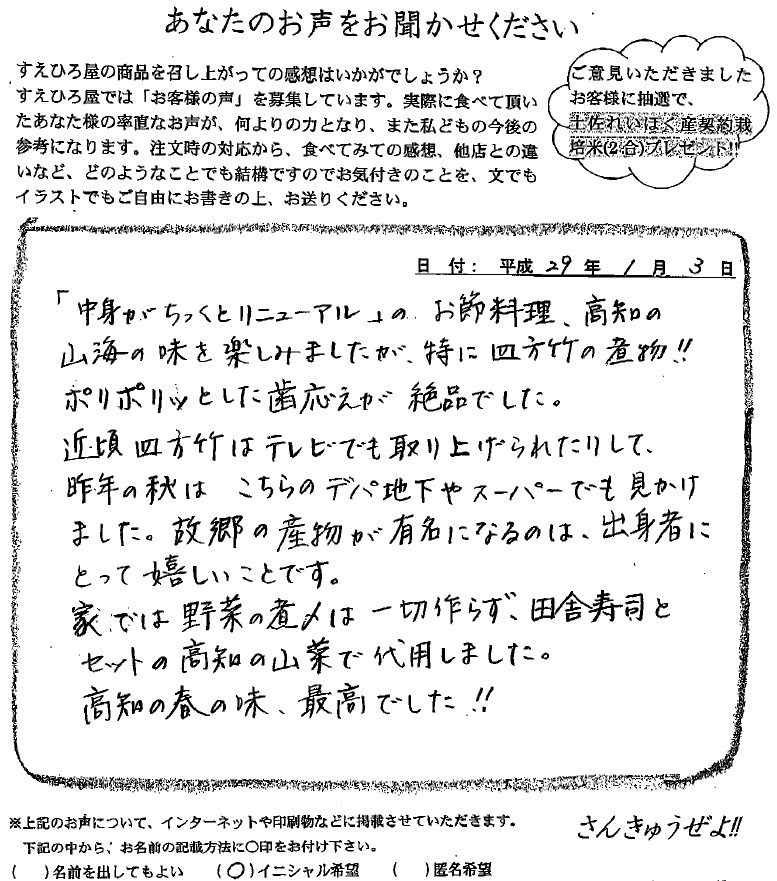 あなたのお声をお聞かせください
すえひろ屋の商品を召し上がっての感想はいかがでしょうか?
すえひろ屋では「お客様の声」を募集しています。実際に食べて頂い
たあなた様の率直なお声が、何よりの力となり、また私どもの今後の
参考になります。注文時の対応から、食べてみての感想、他店との違
いなど、どのようなことでも結構ですのでお気付きのことを、文でも
イラストでもご自由にお書きの上、お送りください。
ご意見いただきました
お客様に抽選で、
土佐れいほく産契約栽
培米(2合)プレゼント!!
日 付: 平成 29 年 1 月 3 日
「中身がちっくとリニューアル」の お節料理、高知の
山海の味を楽しみましたが、特に 四方竹の煮物!!
ポリポリッとした歯応えが 絶品でした。
近頃 四方竹はテレビでも取り上げられたりして、
昨年の秋は こちらのデパ地下やスーパーでも見かけ
ました。故郷の産物が有名になるのは、出身者に
とって嬉しいことです。
家では野菜の煮〆は一切作らず、田舎寿司と
セットの高知の山菜で代用しました。
高知の春の味、最高でした!!
※上記のお声について、インターネットや印刷物などに掲載させていただきます。
下記の中から、お名前の記載方法に○印をお付け下さい。
( )名前を出してもよい (○)イニシャル希望 ( )匿名希望
さんきゅうぜよ!!